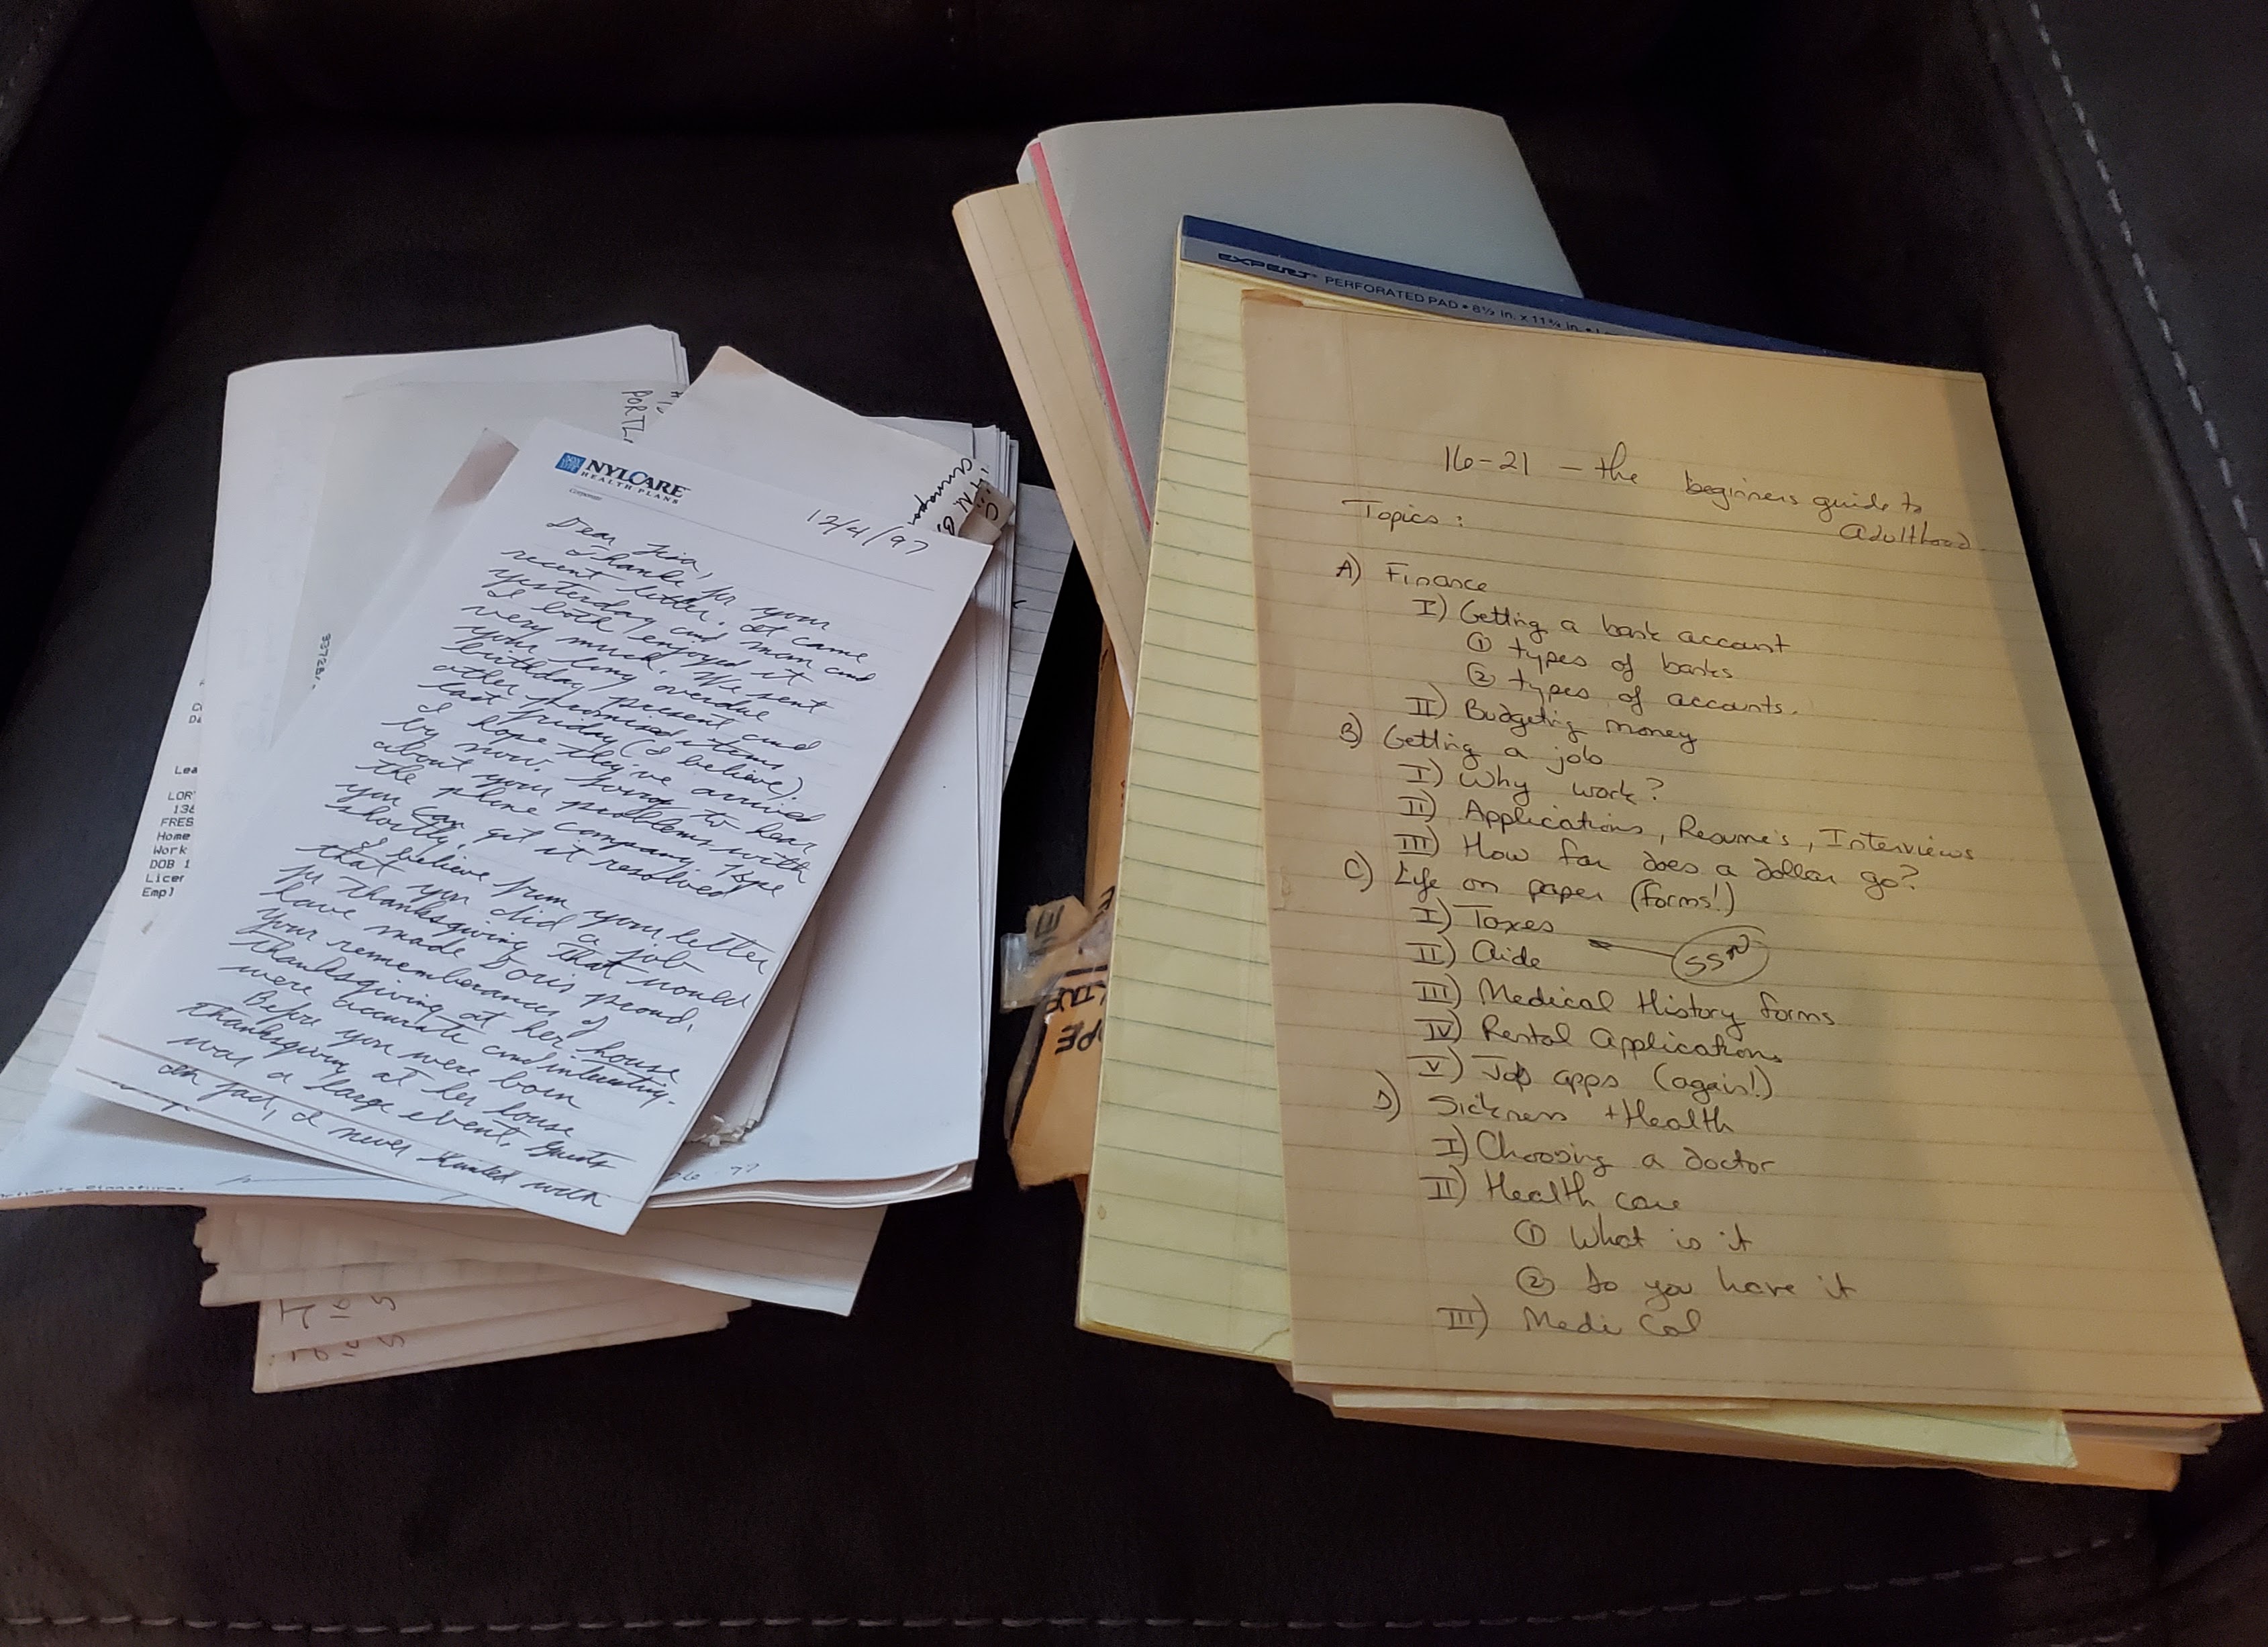 NYLCARE
HEALTH PLANS
Corporate
12/4/97
Dear Lisa,
Thanks for your
recent letter. It came
yesterday and Mom and
I both enjoyed it
very much. We sent
your long overdue
birthday present and
other promised items
last Friday (I believe).
I hope they've arrived
by now. Sorry to hear
about your problems with
the phone company. Hope
you can get it resolved
shortly.
I believe from your letter
that you did a job
for Thanksgiving that would
have made Doris proud.
Your remembrances of
Thanksgiving at her house
were accurate and interesting.
Before you were born
Thanksgiving at her house
was a large event. Guests
In fact, I never
with
PORTL
33728
Lea
LOR
136
FRES
Home
Work
DOB 1
Licer
Empl
EXPERT PERFORATED PAD • 8½ in. x 11¾ in. •
16-21 - the beginners guide to
adulthood
Topics:
A) Finance
I) Getting a bank account
① types of banks
② types of accounts.
II) Budgeting money
B) Getting a job
I) Why work?
II) Applications, Resume's, Interviews
III) How far does a dollar go?
C) Life on paper (forms!)
I) Taxes
II) Aide
SSN
III) Medical History forms
IV) Rental Applications
V) Job apps (again!)
D) Sickness + Health
I) Choosing a doctor
II) Health care
① What is it
② do you have it
III) Medi Cal